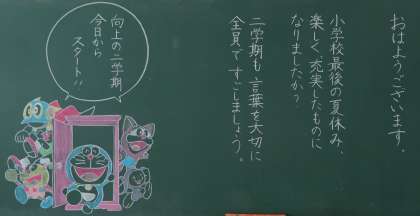 おはようございます。
小学校最後の夏休み、
楽しく充実したものに
なりましたか?
二学期も、言葉を大切に
全員ですごしましょう。
向上の二学期
今日から
スタート!!